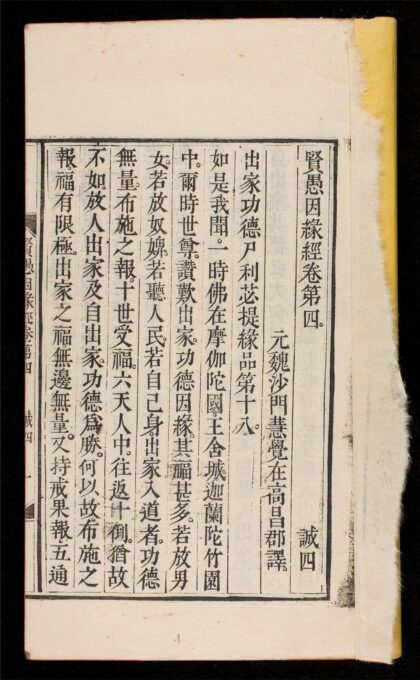 賢愚因緣經卷第四。 誠四
元魏沙門慧覺在高昌郡譯
出家功德尸利苾提緣品第十八。
如是我聞。一時佛在摩伽陀國。王舍城。迦蘭陀竹園
中。爾時世尊。讚歎出家功德因緣。其福甚多。若放男
女。若放奴婢。若聽人民。若自己身出家入道者。功德
無量。布施之報。十世受福。六天人中。往返十倒。猶故
不如放人出家及自出家。功德爲勝。何以故。布施之
報。福有限極。出家之福。無邊無量。又持戒果報。五通
賢愚因緣經卷第四 誠四 一